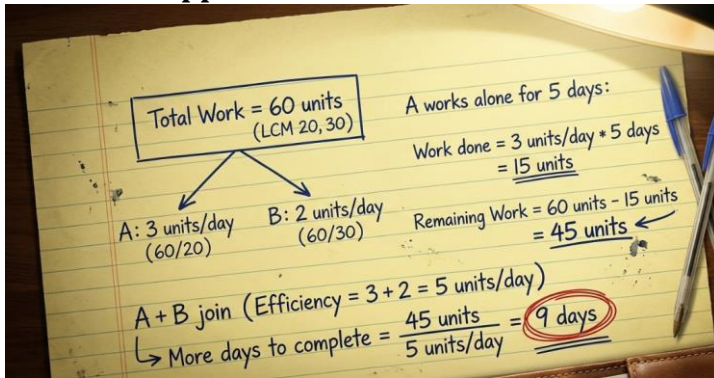 Total Work = 60 units
(LCM 20, 30)
A: 3 units/day
(60/20)
B: 2 units/day
(60/30)
A works alone for 5 days:
Work done = 3 units/day * 5 days
= 15 units
Remaining Work = 60 units - 15 units
= 45 units
A + B join (Efficiency = 3 + 2 = 5 units/day)
↳ More days to complete = 45 units / 5 units/day = 9 days